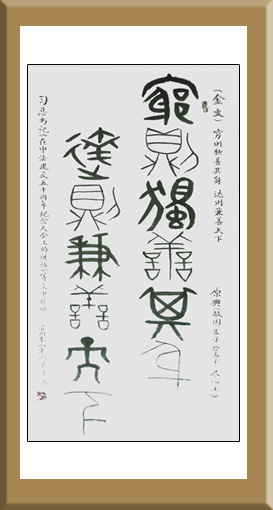 (金文) 穷则独善其身 达则兼善天下
原典(战国)孟子《孟子 尽心上》
窮則獨善其身
達則兼善天下
习总书记《在中法建交五十周年纪念大会上的讲话》等文中引用